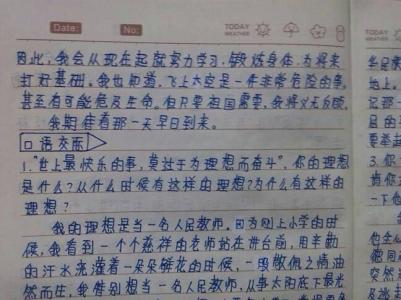 Date:
No:
TODAY
WEATHER
TODAY
WEATHER
因此,我会从现在起就努力学习,锻炼身体,为将来
打好基础。我也知道,飞上太空是一件非常危险的事,
甚至有可能危及生命。但只要祖国需要,我将义无反顾。
我期待着那一天早日到来。
口语交际
1."世上最快乐的事,莫过于为理想而奋斗"。你的理想
是什么?从什么时候有这样的理想?为什么有这样的
理想?
我的理想是当一名人民教师。因为刚上小学的时
候,我看到一个个慈祥的老师站在讲台前,用辛勤
的汗水浇灌着一朵朵鲜花的时候,一股敬佩之情油
然而生,我特别想当一名人民教师,从事太阳底下最光
地上。
记那一
3.你
一下他